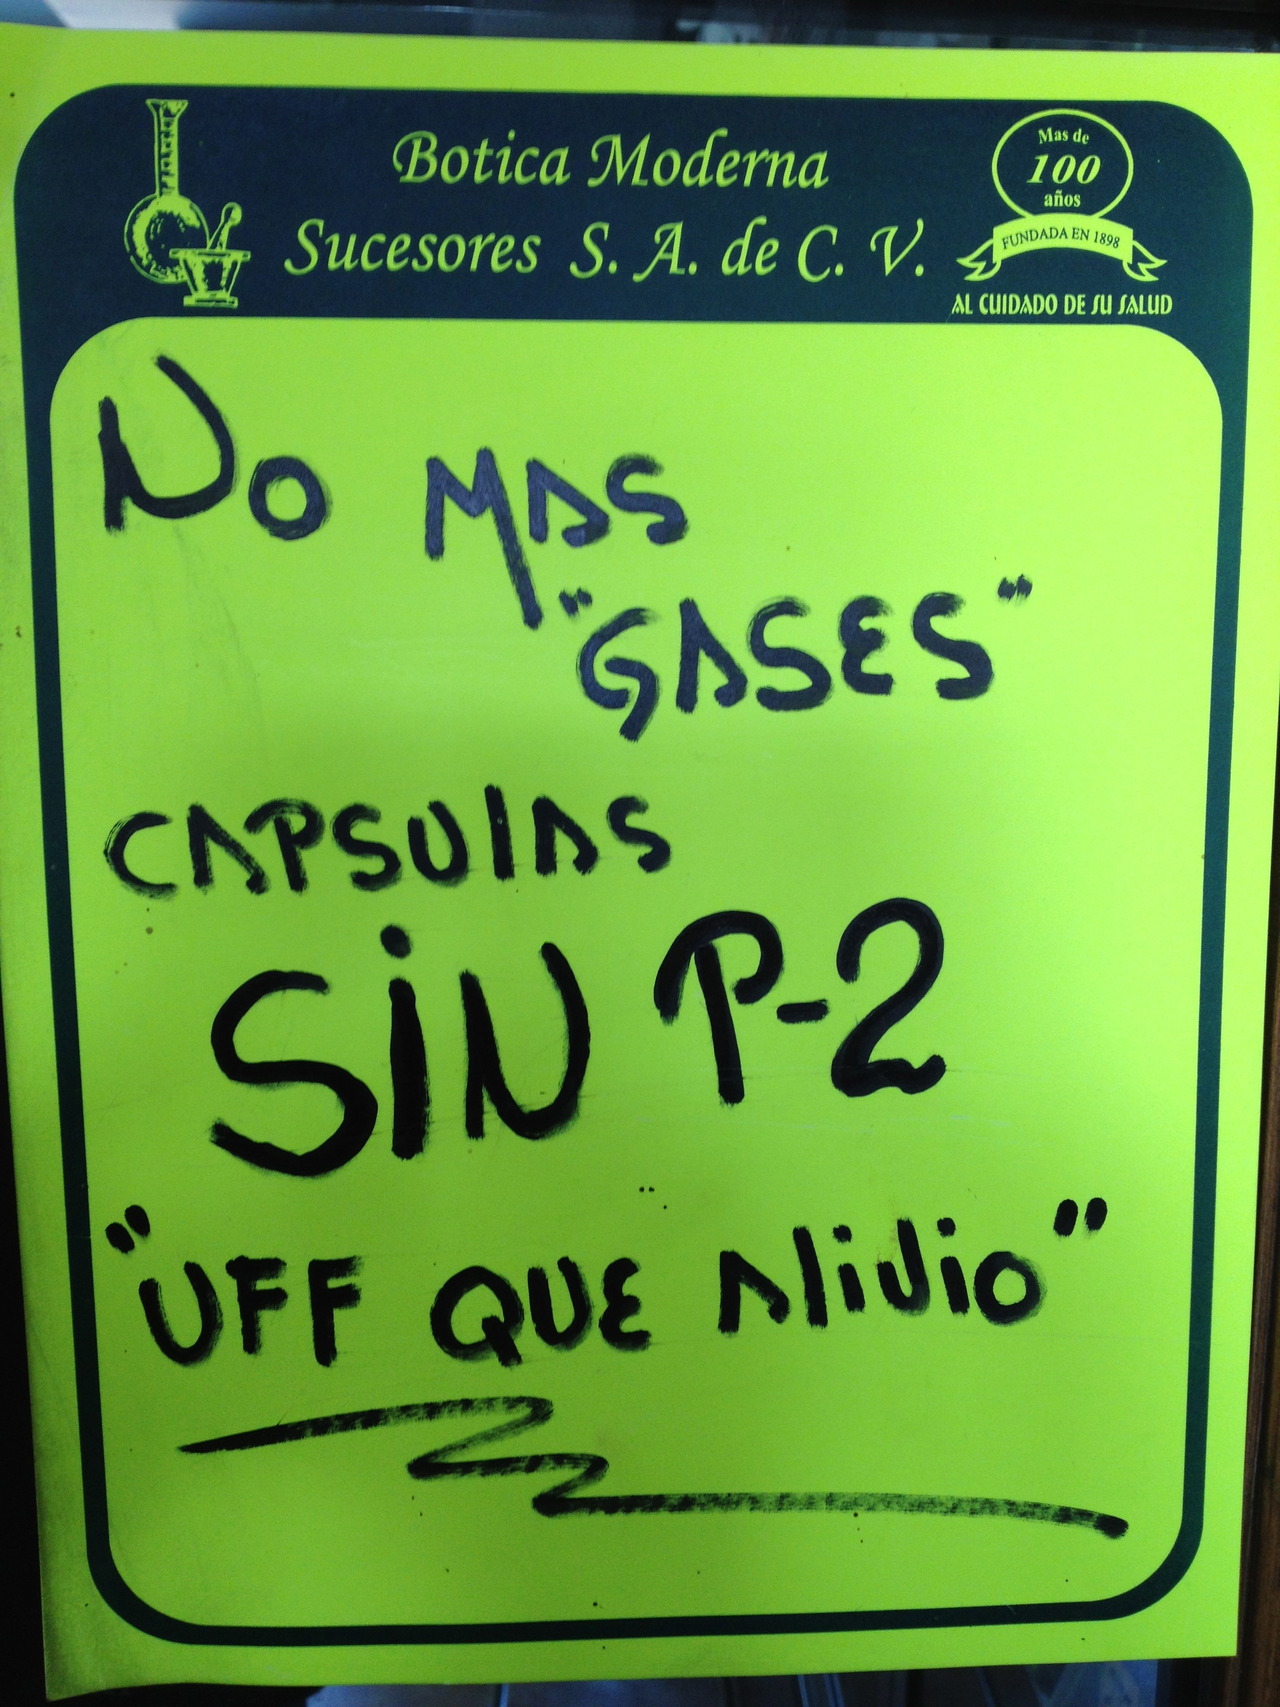 Botica Moderna
Sucesores S. A. de C. V.
Mas de
100
años
FUNDADA EN 1898
AL CUIDADO DE SU SALUD
No MAS
"GASES"
CAPSUlAS
SiN P-2
"UFF QUE Alivio"